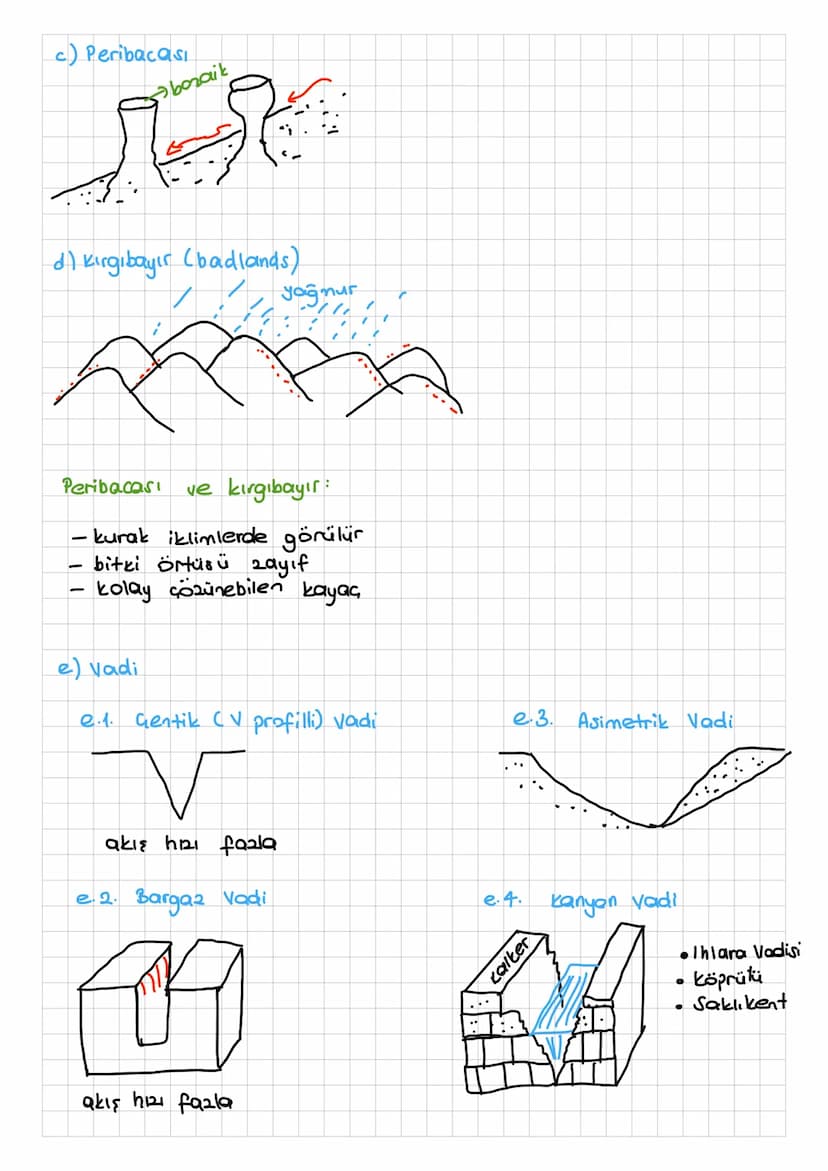 c) Peribacası
→bozaik
d) kırgıbayır (badlands)
yağnur
Peribacası ve kırgıbayır:
- kurak iklimlerde görülür
- bitki örtüsü zayıf
- kolay çözünebilen kayaç
e) Vadi
e.1. Çentik (V profilli) Vadi
akış hızı fazla
e.3. Asimetrik Vadi
e.2. Bargaz Vadi
akış hızı fazla
e.4. Kanyon Vadi
kalker
• Ihlara Vadisi
• Köprütü
• Saklıkent